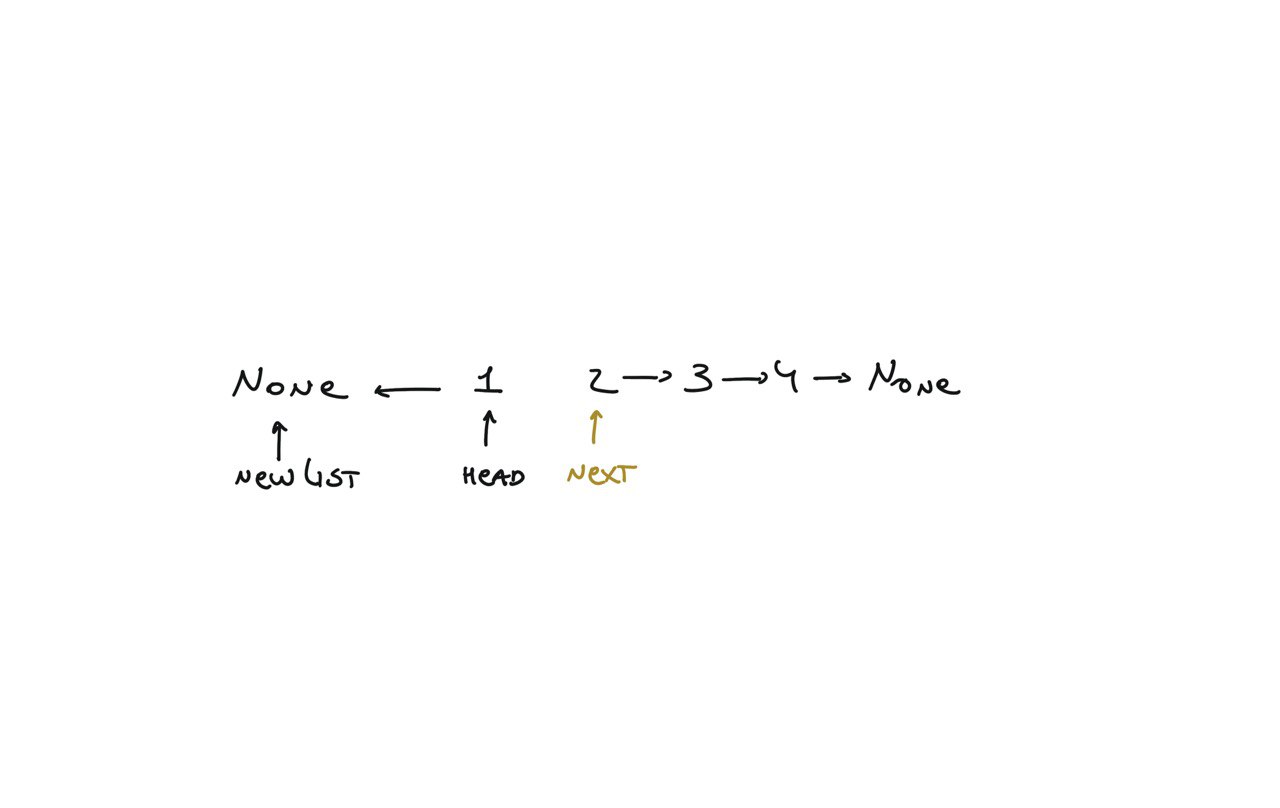 None ← 1 2 → 3 → 4 → None
↑ ↑ ↑
new list HeAD NexT